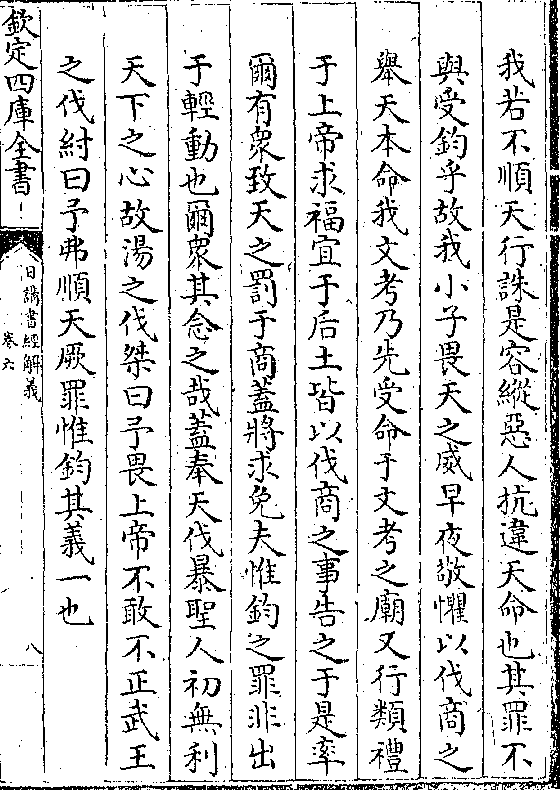 我若不順天行誅是容縱惡人抗違天命也其罪不
與受鈞乎故我小子畏天之威早夜敬懼以伐商之
舉天本命我文考乃先受命于文考之廟又行類禮
于上帝求福宜于后土皆以伐商之事告之于是率
爾有衆致天之罰于商蓋將求免夫惟鈞之罪非出
于輕動也爾衆其念之哉蓋奉天伐暴聖人初無利
天下之心故湯之伐桀曰予畏上帝不敢不正武王
之伐紂曰予弗順天厥罪惟鈞其義一也
欽定四庫全書
日講書經解義
卷六
八